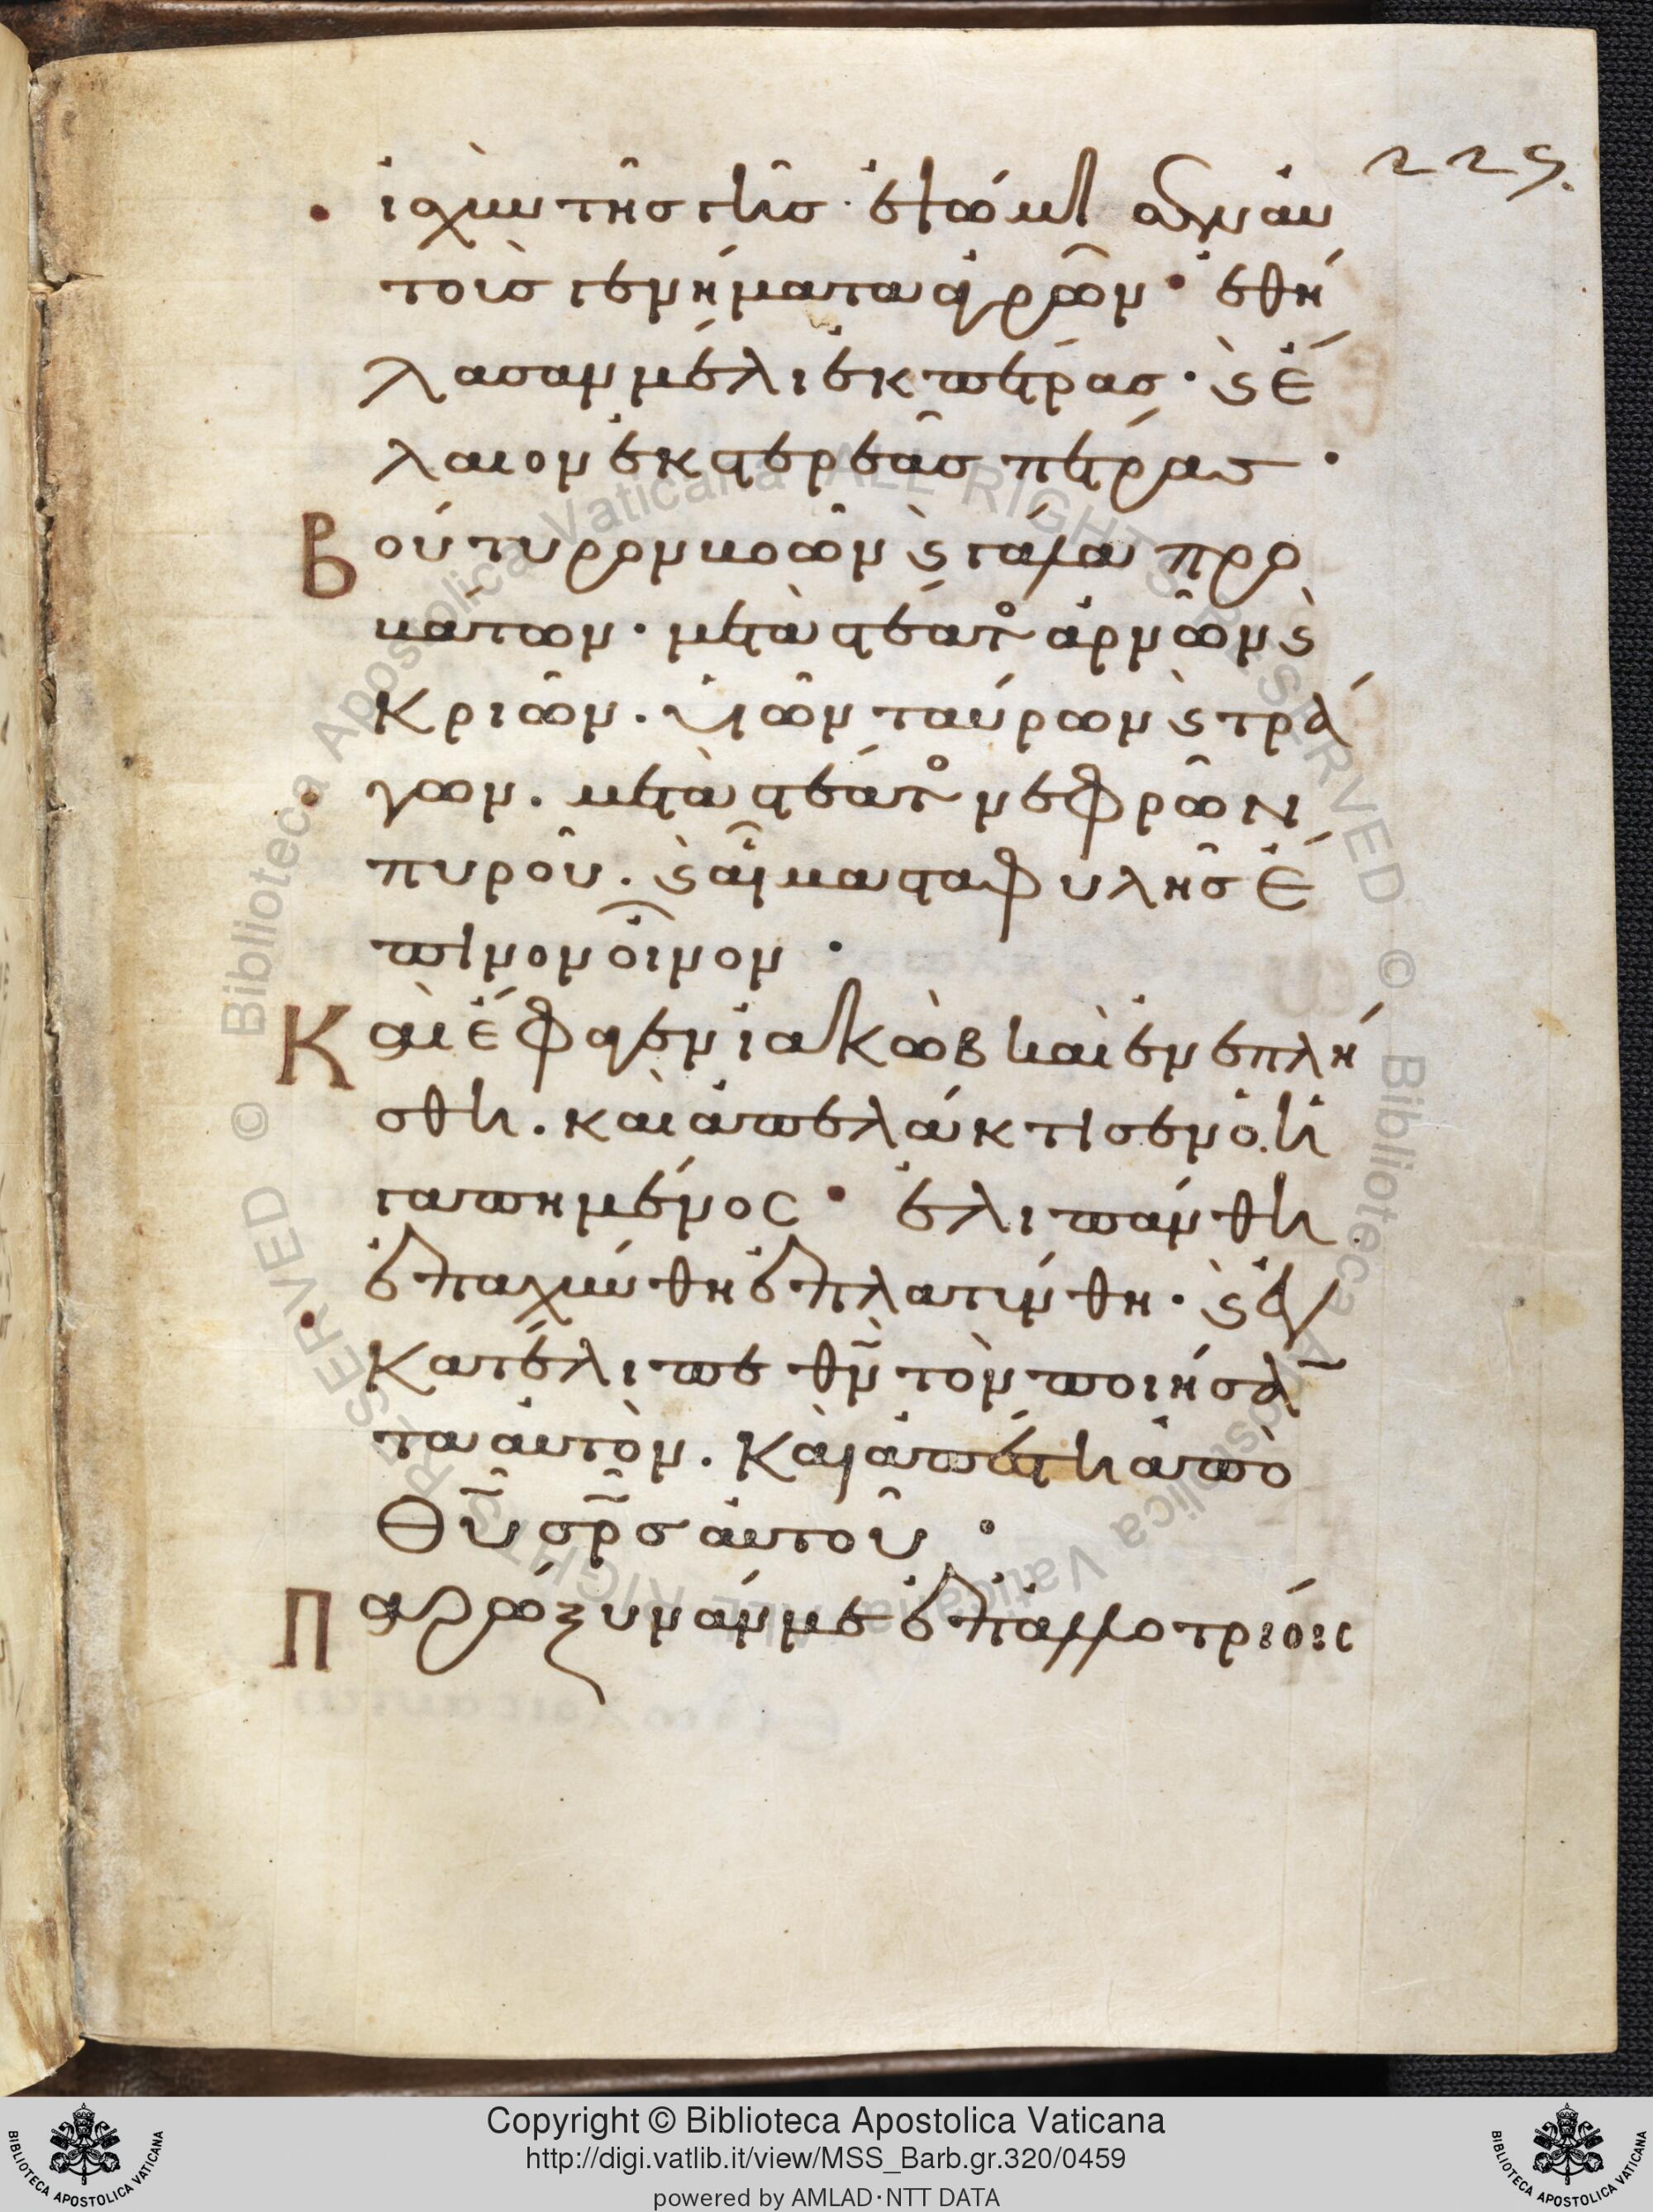 229.
ἰσχὺν τῆς γῆς· ἐψώμισεν αὐ
τοὺς γεννήματα ἀγρῶν· ἐθή
λασαν μέλι ἐκ πέτρας· ϛ ἔ
λαιον ἐκ στερεᾶς πέτρας·
Βούτυρον βοῶν ϛ γάλα προ
βάτων· μετὰ στέατος ἀρνῶν ϛ
κριῶν. υἱῶν ταύρων ϛ τρά
γων. μετὰ στέατος νεφρῶν
πυροῦ. ϛ αἷμα σταφυλῆς ἔ
πινον οἶνον·
Καὶ ἔφαγεν ἰακὼβ καὶ ἐνεπλή
σθη. καὶ ἀπελάκτισεν ὁ ἠ
γαπημένος· ἐλιπάνθη
ἐπαχύνθη ἐπλατύνθη· ϛ ἐγ
κατέλιπε θν τὸν ποιήσαν
τα αὐτὸν. καὶ ἀπέστη ἀπὸ
θυ σρς αὐτοῦ·
Παρώξυνάν με ἐπ ἀλλοτρίοις
Copyright © Biblioteca Apostolica Vaticana
http://digi.vatlib.it/view/MSS_Barb.gr.320/0459
powered by AMLAD·NTT DATA
BIBLIOTECA APOSTOLICA VATICANA
BIBLIOTECA APOSTOLICA VATICANA